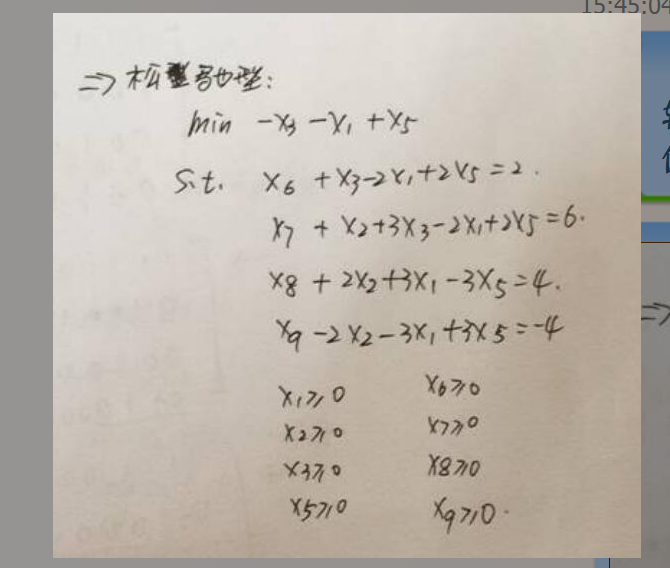 15:45:04
⇒ 松弛型:
min -x₃ - x₁ + x₅
s.t. x₆ + x₃ - 2x₁ + 2x₅ = 2.
x₇ + x₂ + 3x₃ - 2x₁ + 2x₅ = 6.
x₈ + 2x₂ + 3x₁ - 3x₅ = 4.
x₉ - 2x₂ - 3x₁ + 3x₅ = -4
x₁ ≥ 0 x₆ ≥ 0
x₂ ≥ 0 x₇ ≥ 0
x₃ ≥ 0 x₈ ≥ 0
x₅ ≥ 0 x₉ ≥ 0.
⇒